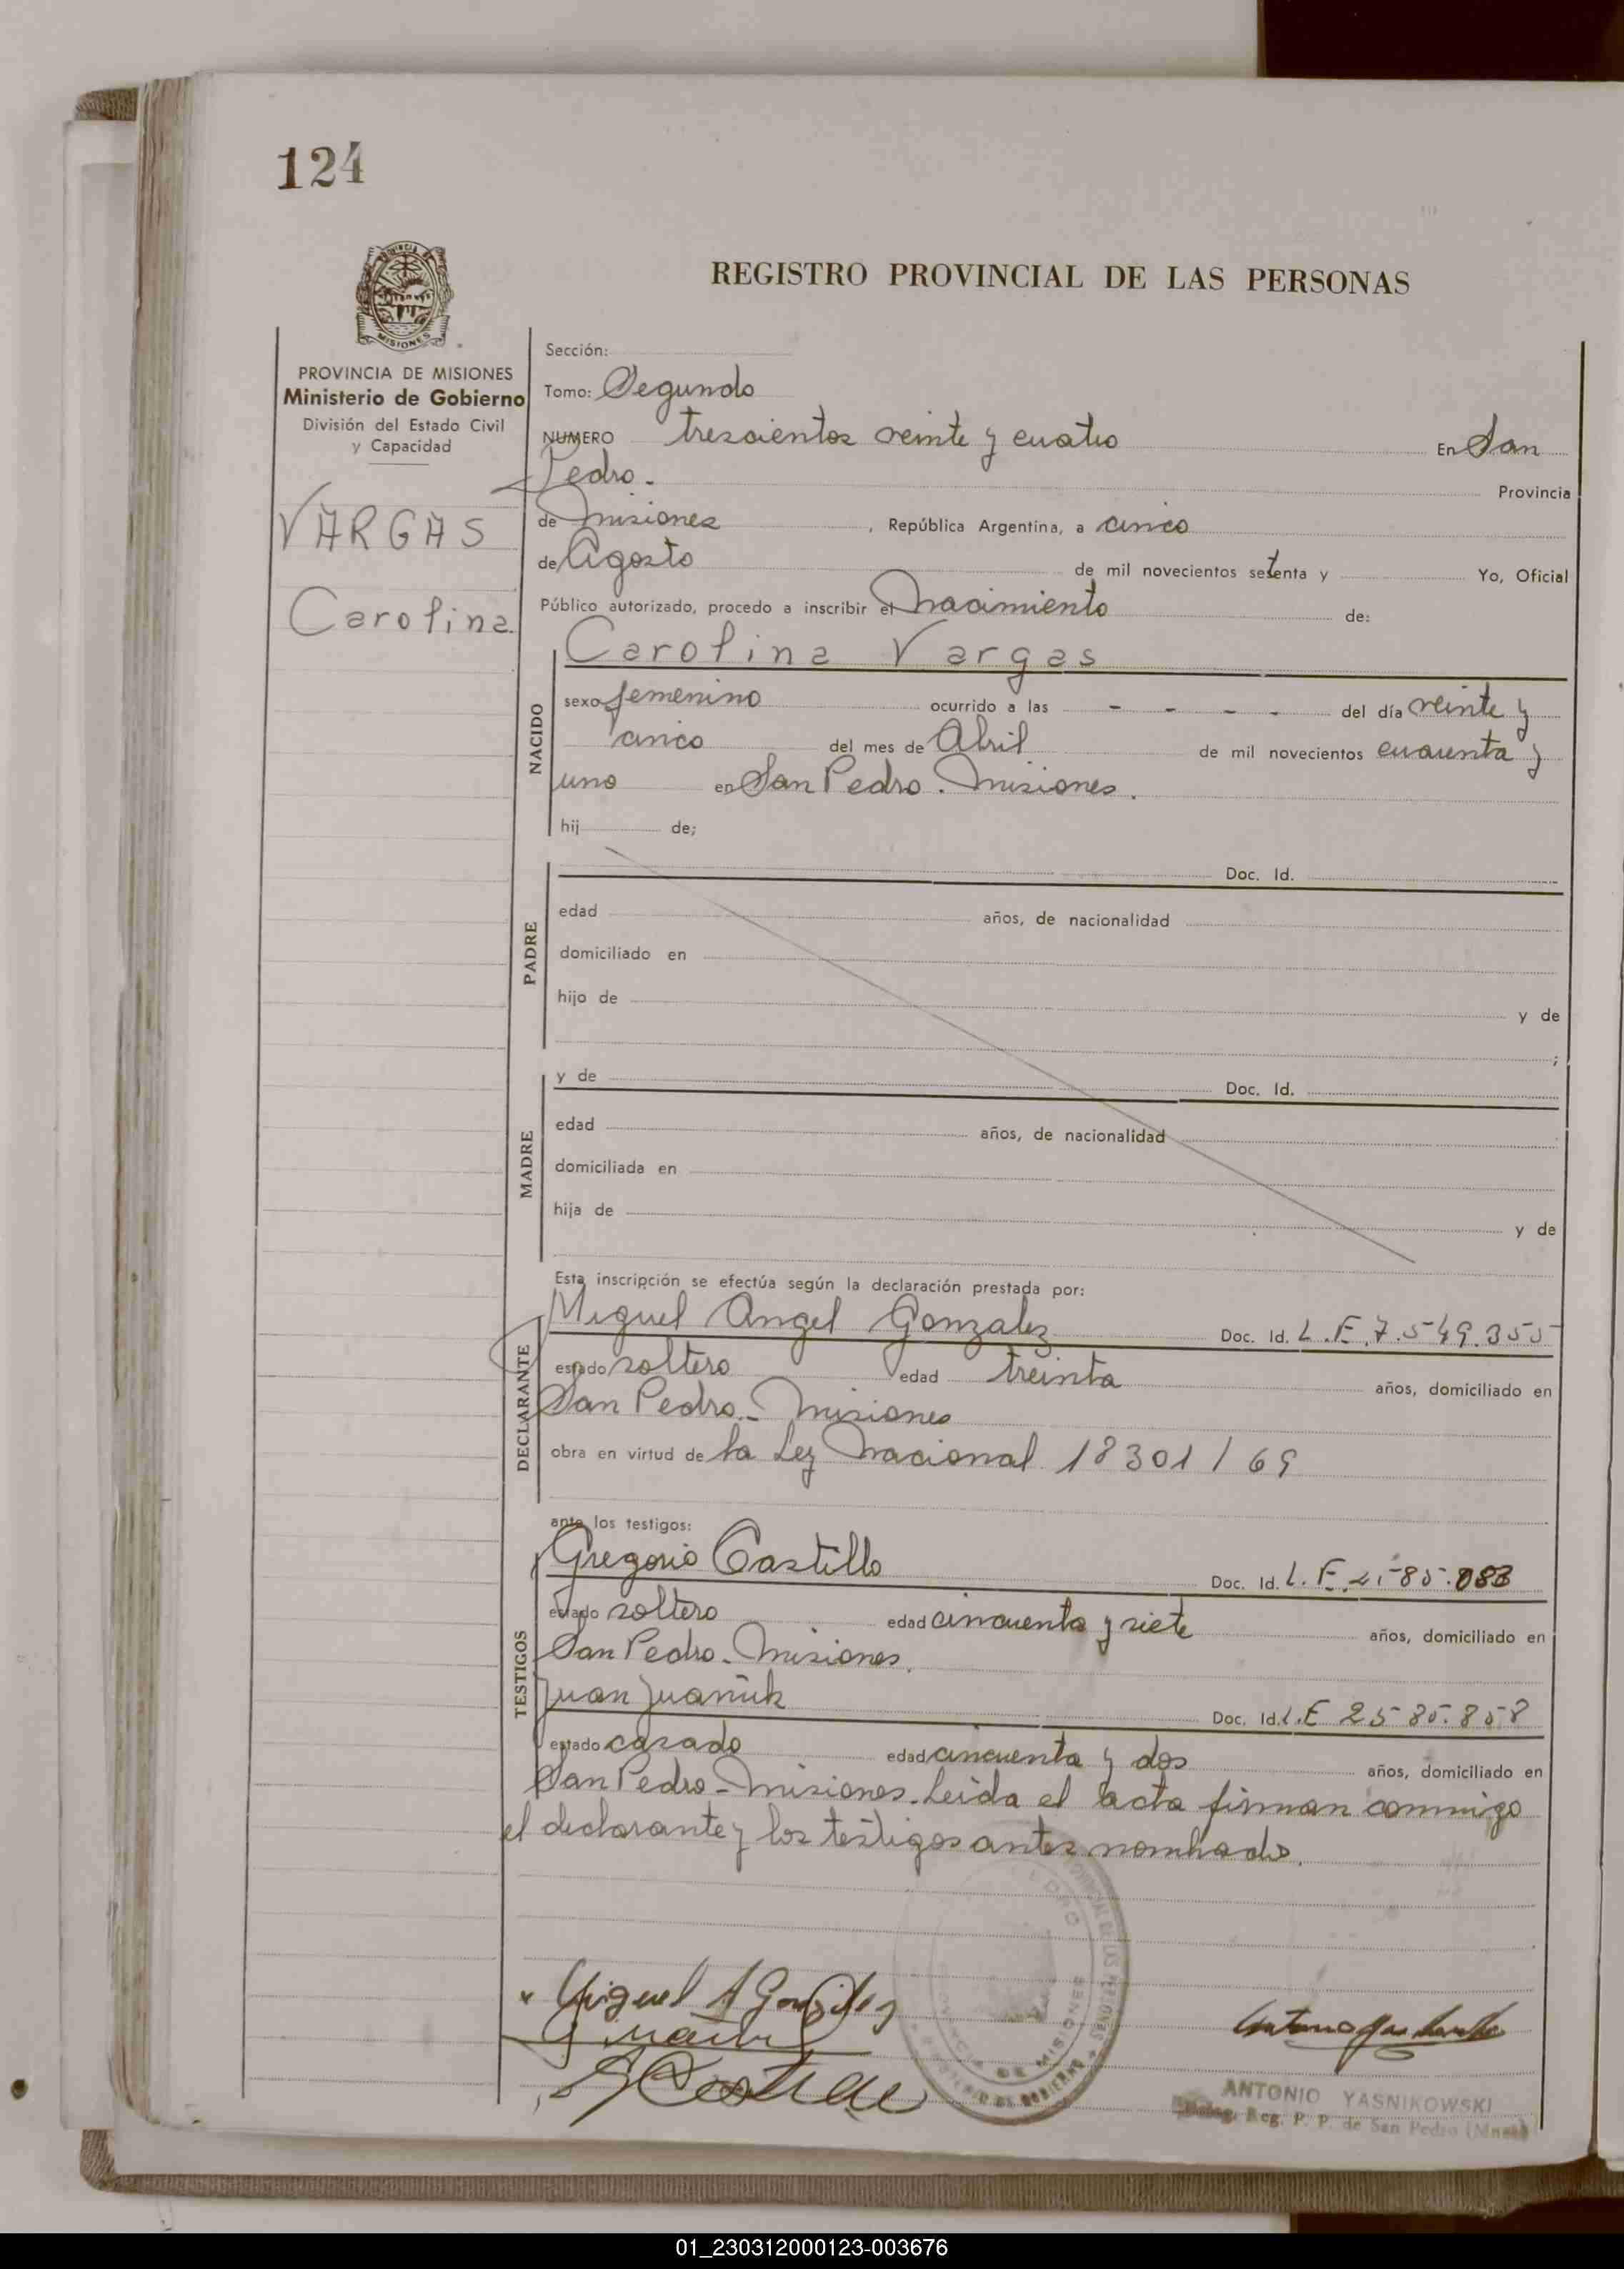 124
PROVINCIA DE MISIONES
Ministerio de Gobierno
División del Estado Civil
y Capacidad
VARGAS
Carolina
REGISTRO PROVINCIAL DE LAS PERSONAS
Sección:
Tomo: Segundo
NUMERO trescientos veinte y cuatro En San
Pedro. Provincia
de Misiones, República Argentina, a cinco
de Agosto de mil novecientos setenta y Yo, Oficial
Público autorizado, procedo a inscribir el nacimiento de:
Carolina Vargas
NACIDO
sexo femenino ocurrido a las - - - - del día veinte y
cinco del mes de Abril de mil novecientos cuarenta y
uno en San Pedro. Misiones.
hij de;
PADRE
Doc. Id.
edad años, de nacionalidad
domiciliado en
hijo de y de
;
MADRE
y de Doc. Id.
edad años, de nacionalidad
domiciliada en
hija de y de
Esta inscripción se efectúa según la declaración prestada por:
DECLARANTE
Miguel Angel Gonzalez Doc. Id. L.E.7.549.355
estado soltero edad treinta años, domiciliado en
San Pedro - Misiones
obra en virtud de la Ley Nacional 18301/69
ante los testigos:
TESTIGOS
Gregorio Castillo Doc. Id. L.E.
estado soltero edad cincuenta y siete años, domiciliado en
San Pedro - Misiones.
Juan Doc. Id. L.E 25 85.858
estado casado edad cincuenta y dos años, domiciliado en
San Pedro - Misiones. Leida el acta firman conmigo
el declarante y los testigos antes nombrados.
Miguel A Gonzalez
G Castillo
PROVINCIA DE MISIONES
ANTONIO YASNIKOWSKI
Deleg. Reg. P. P. de San Pedro (Mnes)
01_230312000123-003676